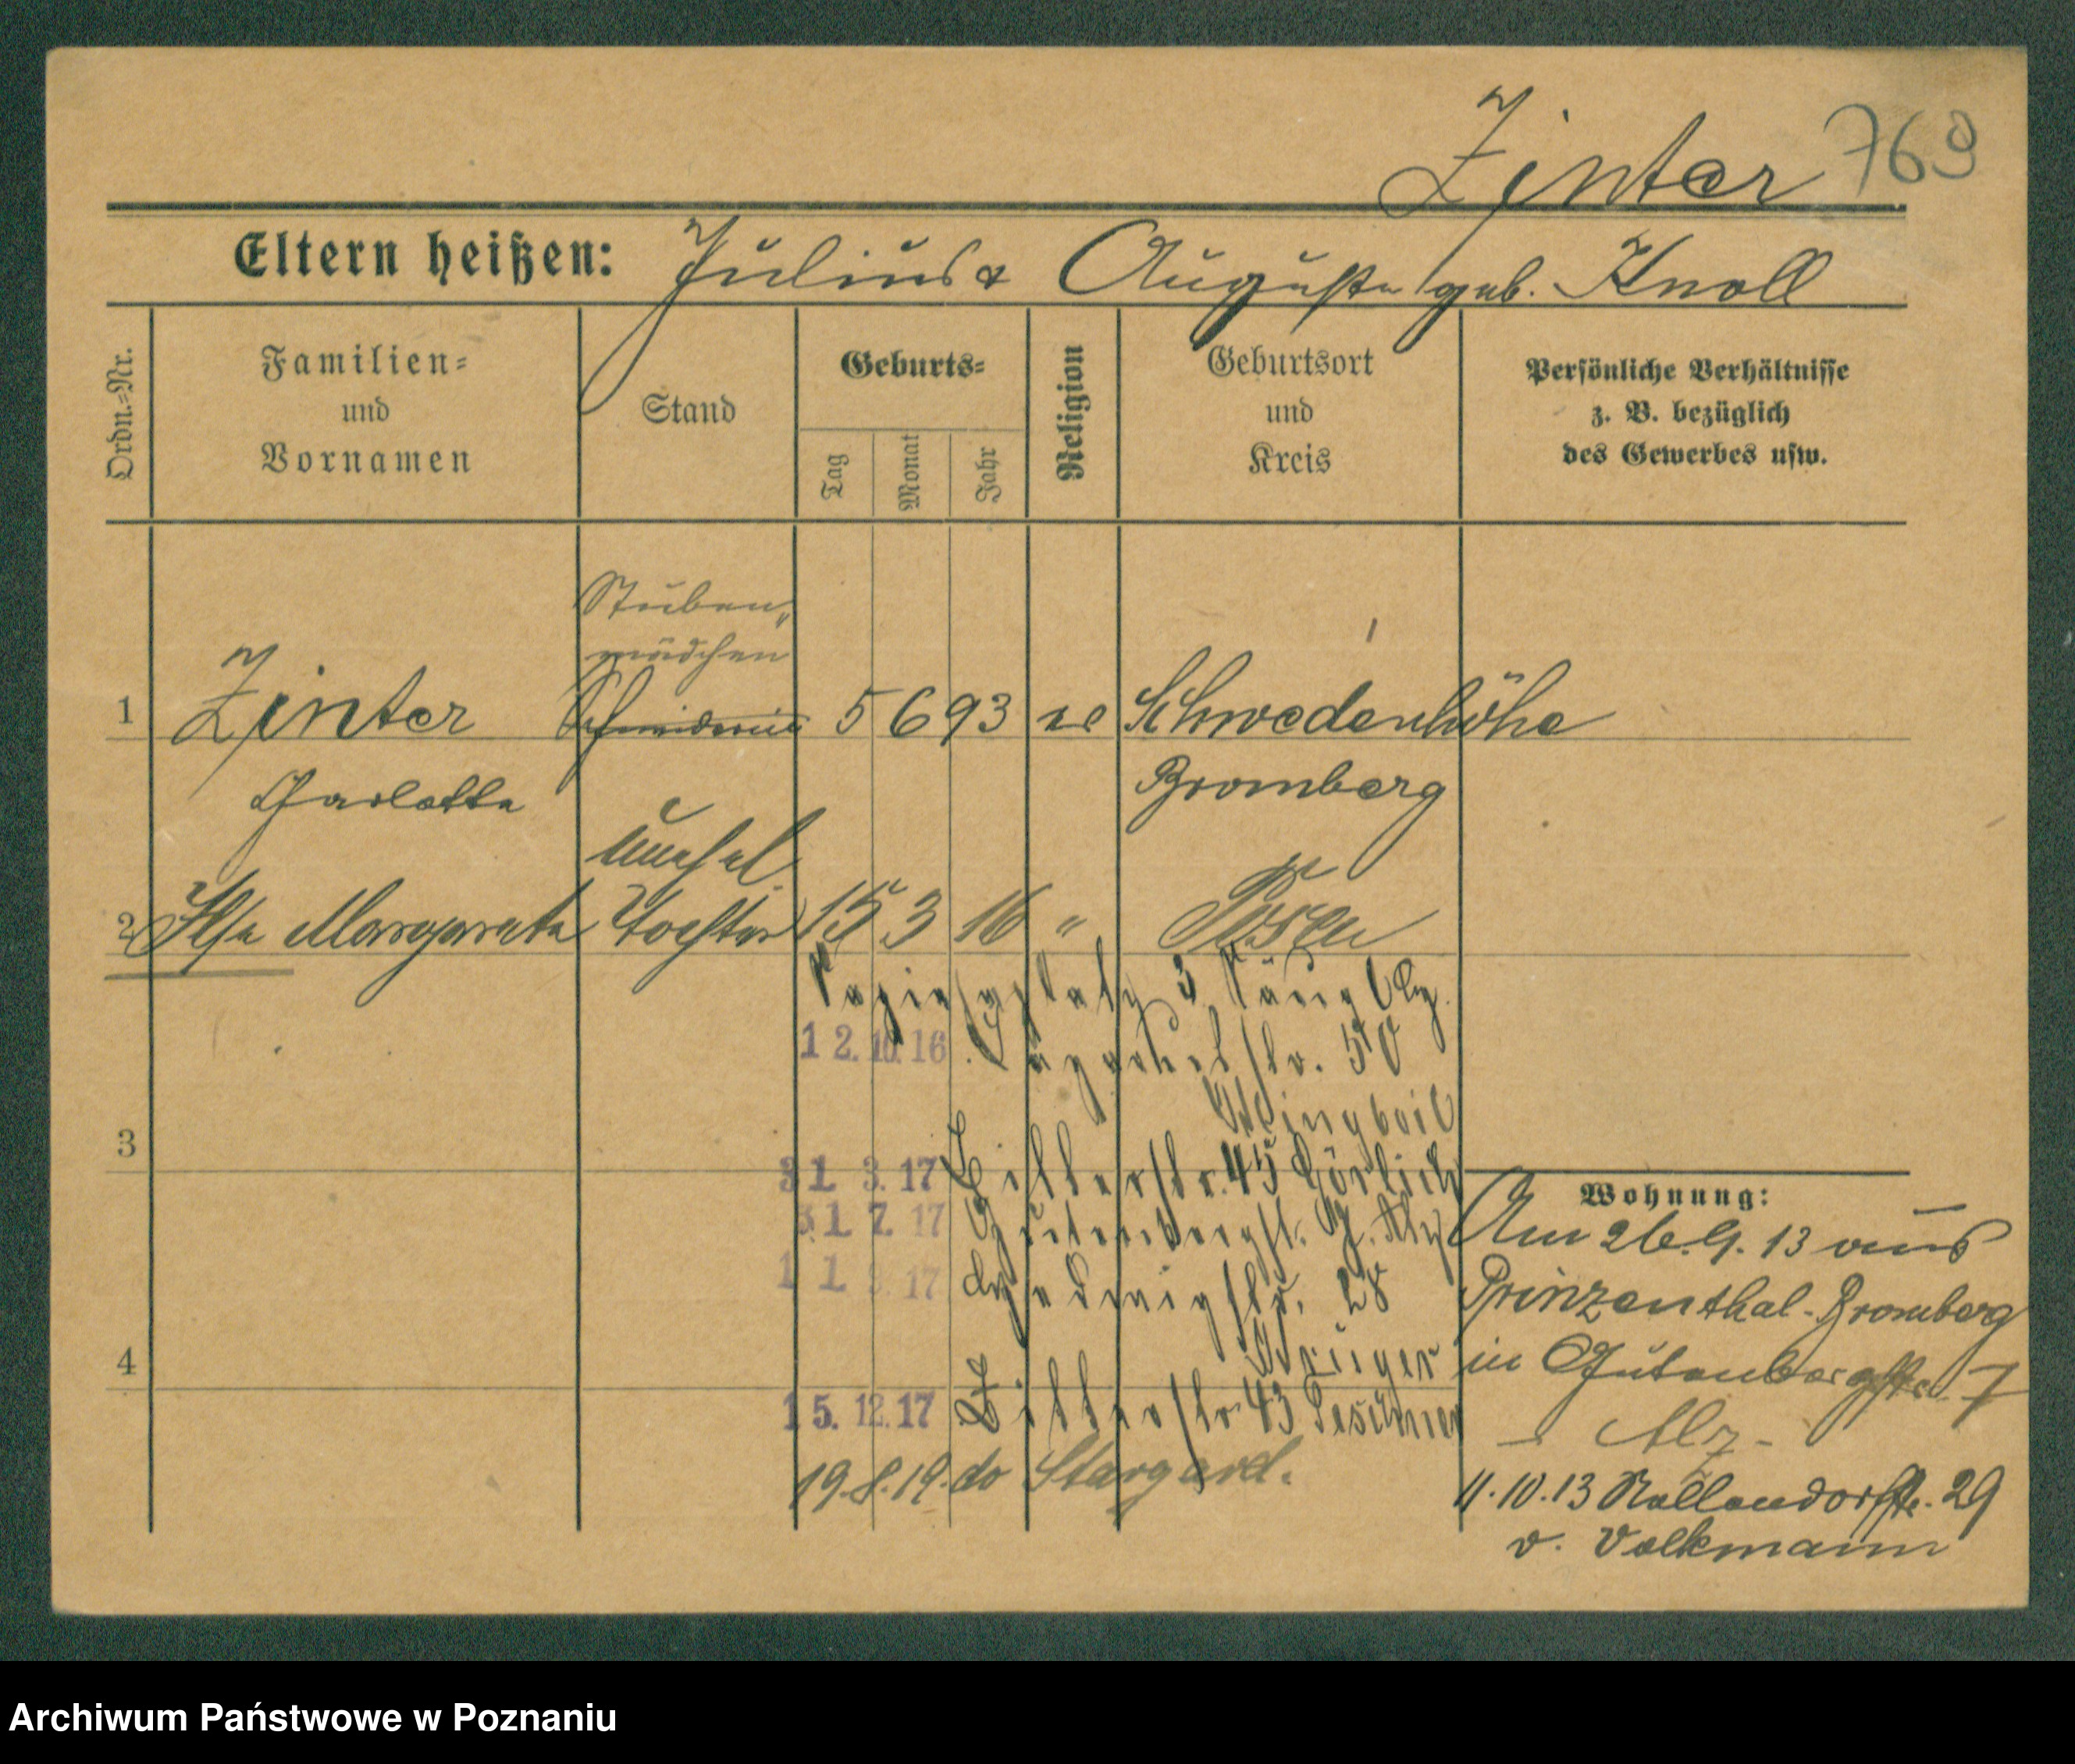 Zinter 769
Eltern heißen: Julius & Auguste geb. Knoll
Ordn.-Nr.
Familien-
und
Vornamen
Stand
Geburts-
Tag
Monat
Jahr
Religion
Geburtsort
und
Kreis
Persönliche Verhältnisse
z. B. bezüglich
des Gewerbes usw.
Stuben-
mädchen
1 Zinter Schneiderin 5 6 93 ev Schwedenhöhe
Charlotte Bromberg
unehel.
2 Ilse Margarete Tochter 15 3 16 " Posen
3
12.10.16 str. 50
31. 3. 17 Ritterstr. 45 Görlich
31. 7. 17 Gutenbergst. 7. Alz
11. 17 Hedwigstr. 28
Krüger
4
15. 12. 17 Ritterstr 43 Peschner
19.8.19. do Stargard.
Wohnung:
Am 26.9.13 aus
Prinzenthal-Bromberg
in Gutenbergstr. 7
- Alz -
11.10.13 Nollendorfstr. 29
v. Volkmann
Archiwum Państwowe w Poznaniu